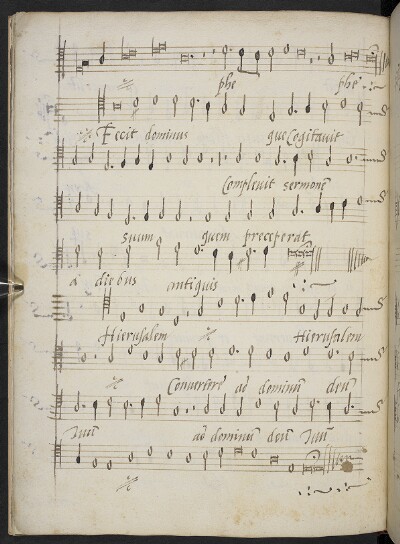 phe phe
Fecit dominus que Cogitavit
Complevit sermonē
suum quem preceperat
a diebus antiquis
Hierusalem Hierusalem
Convertere ad dominū deū
tuū ad dominū deū tuū